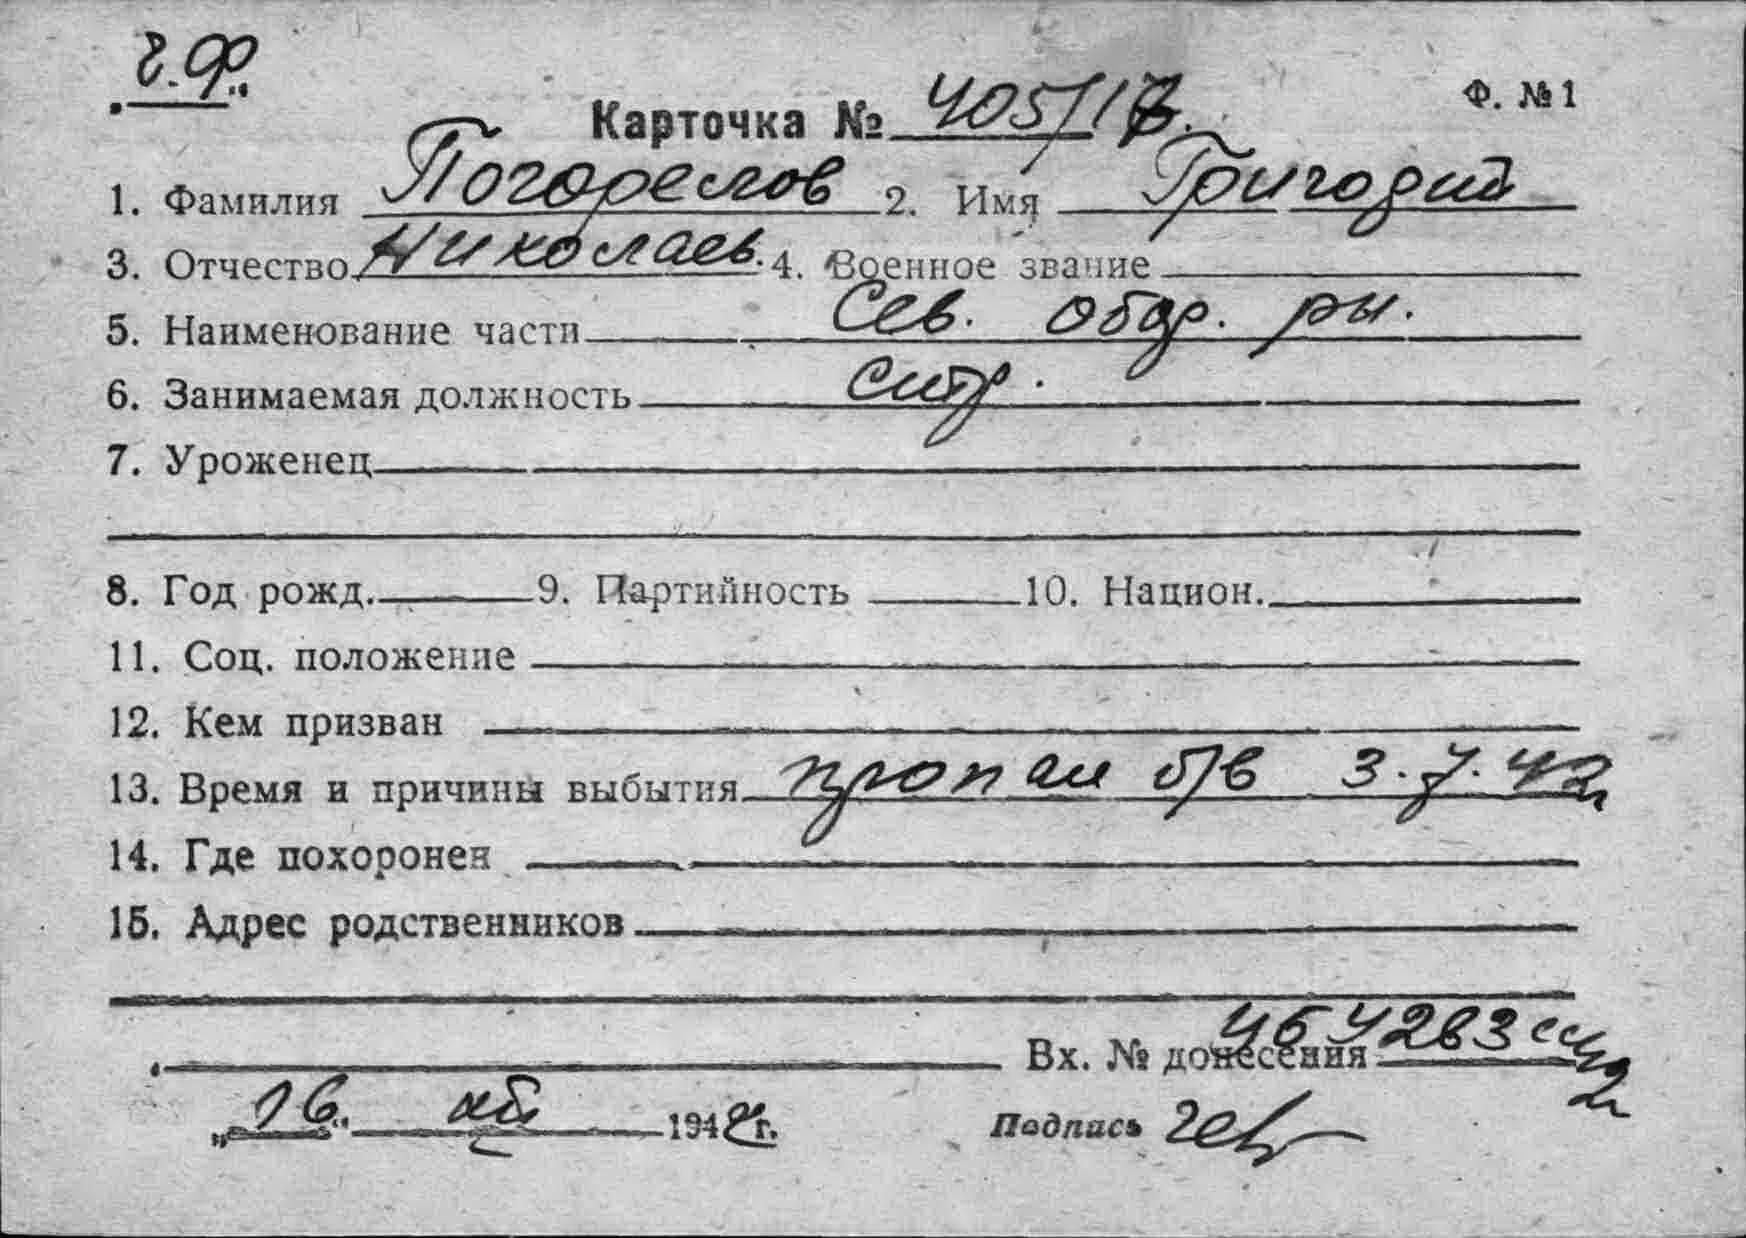 ч.Ф.
Карточка № 405/17в. Ф. № 1
1. Фамилия Погорелов 2. Имя Григорий
3. Отчество Николаев. 4. Военное звание
5. Наименование части Сев. обор. рн.
6. Занимаемая должность
7. Уроженец
8. Год рожд. 9. Партийность 10. Национ.
11. Соц. положение
12. Кем призван
13. Время и причины выбытия пропал б/в 3.7.42г
14. Где похоронен
15. Адрес родственников
Вх. № донесения
"16" 194 г. Подпись